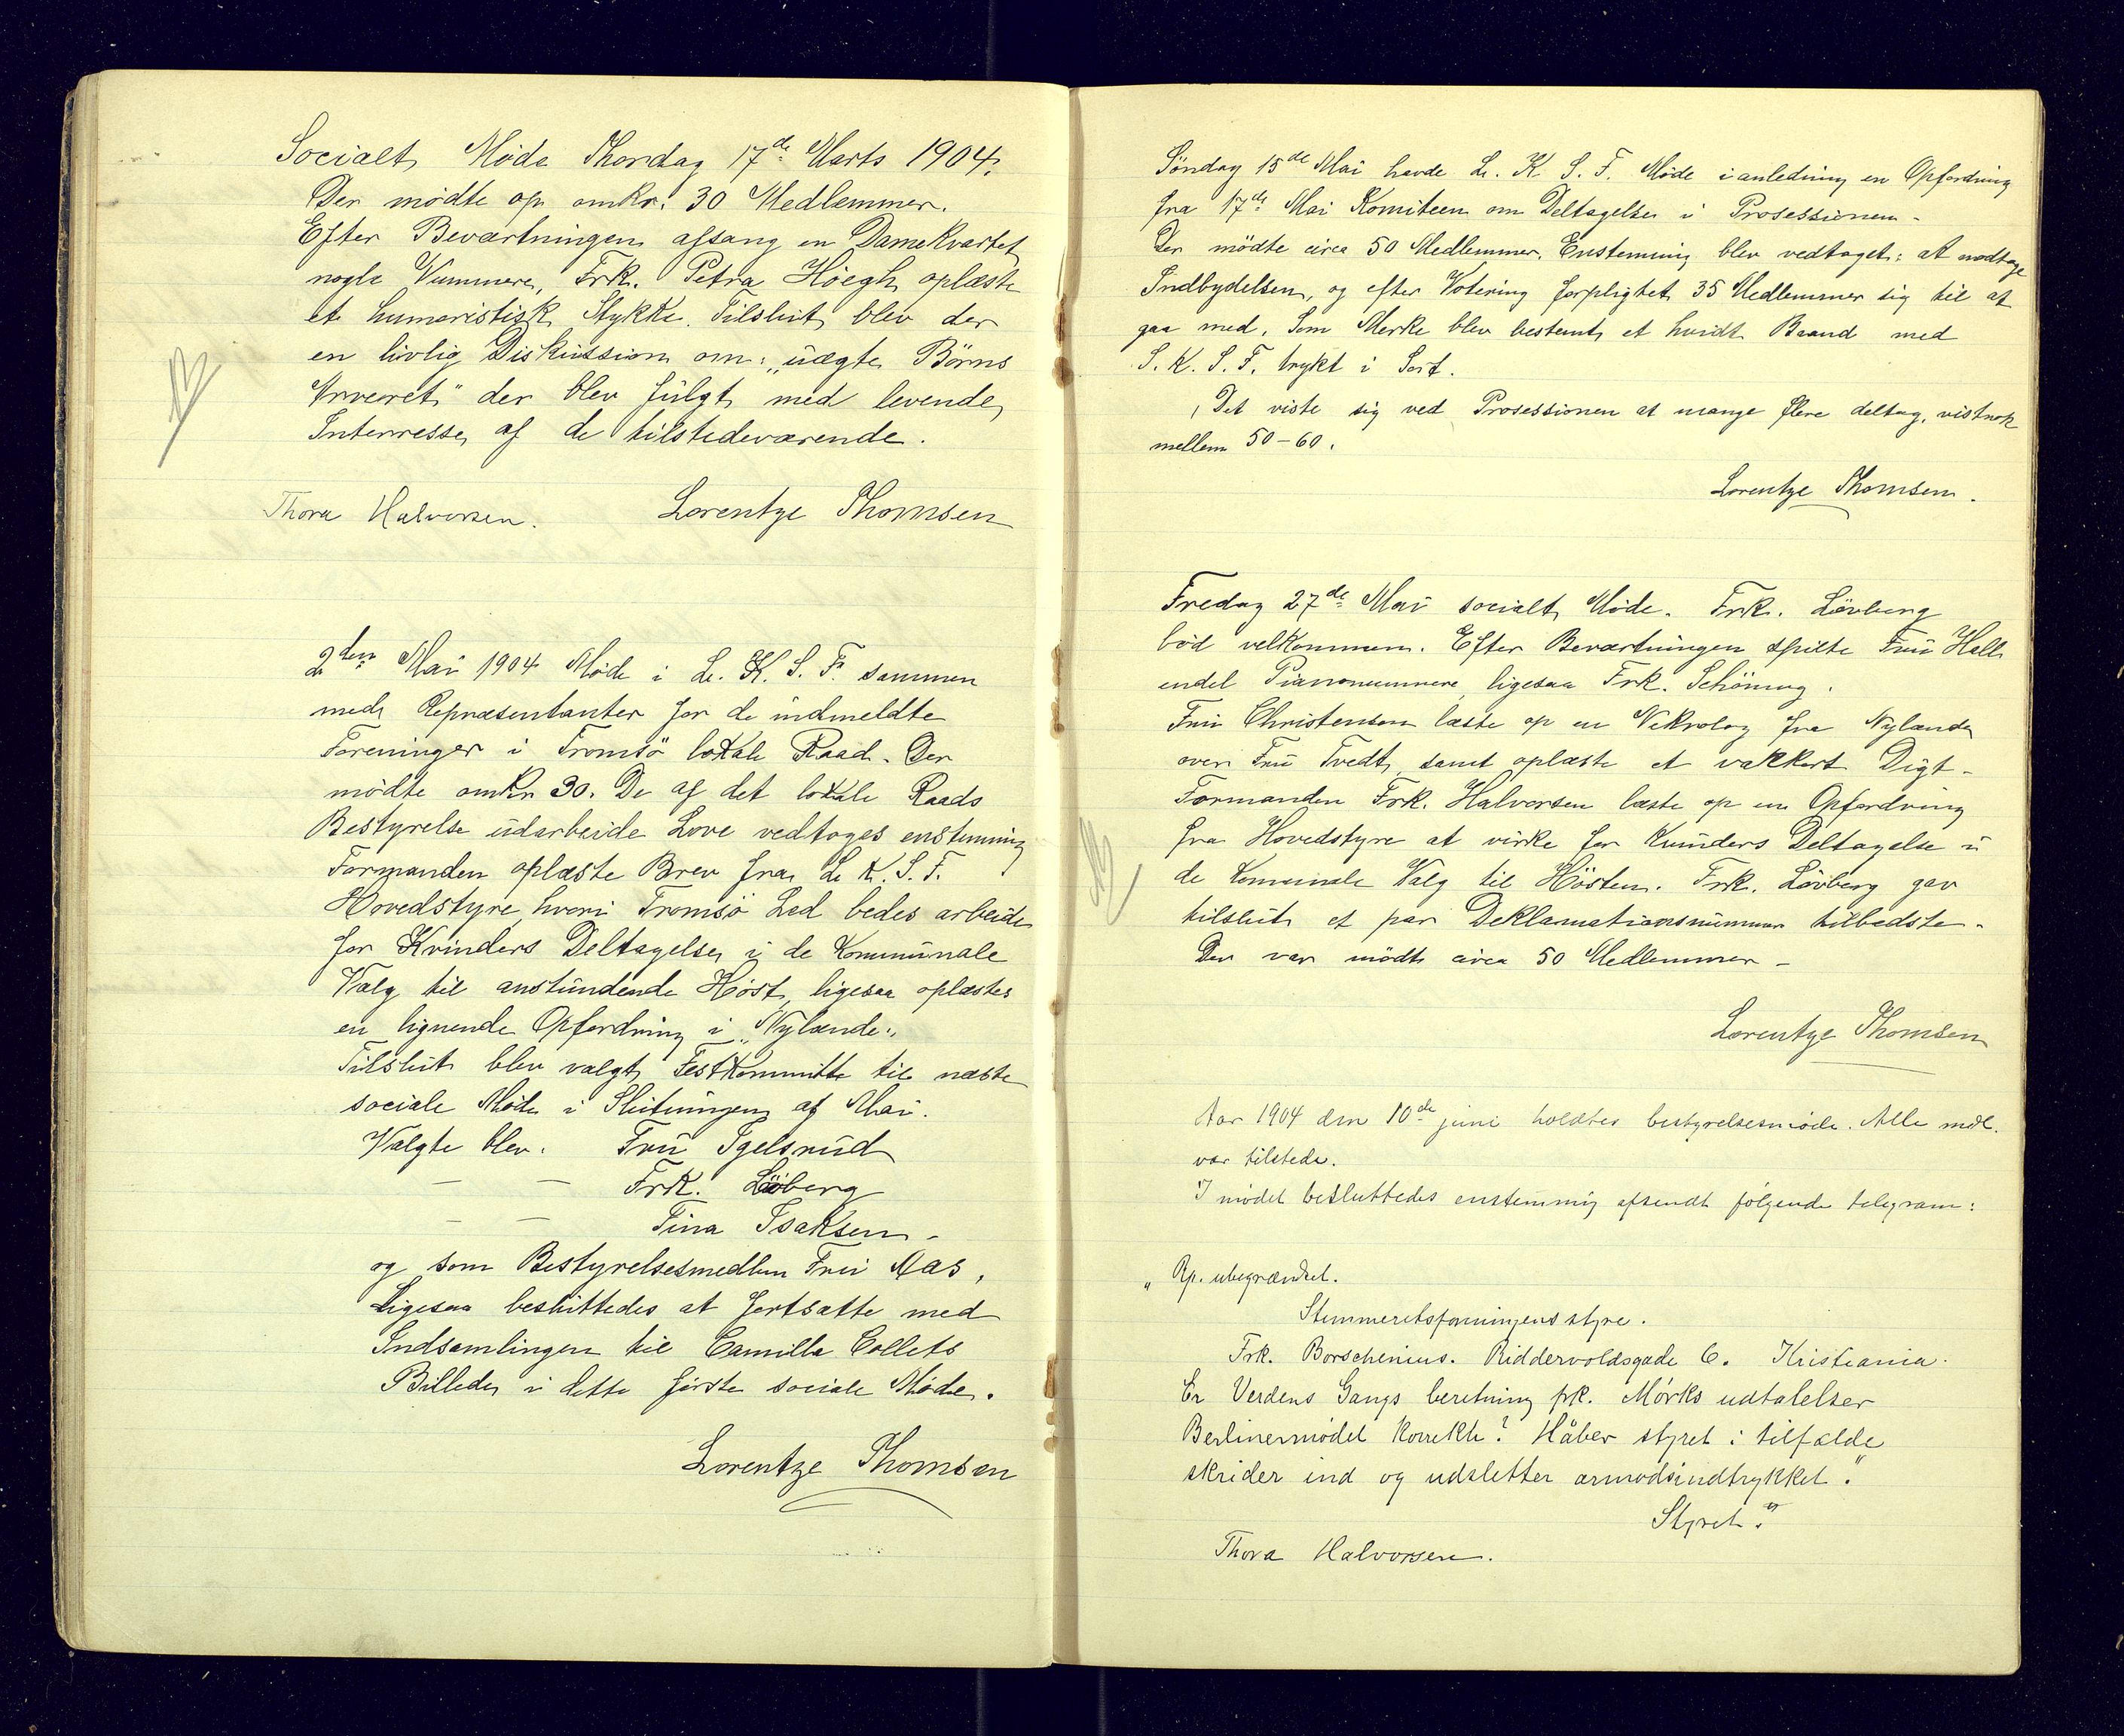 Socialt Møde Thorsdag 17de Marts 1904.
Der mødte op omkr. 30 Medlemmer.
Efter Beværtningen afsang en Damekvartet
nogle Nummere, Frk. Petra Höegh oplæste
et humoristisk Stykke. Tilslut blev der
en livlig Diskussion om: „uægte Börns
Arveret" der blev fulgt med levende
Interresse af de tilstedeværende.
Thora Halvorsen. Lorentze Thomsen
2den Mai 1904 Møde i L. K. S. F. sammen
med Repræsentanter for de indmeldte
Foreninger i Tromsö lokale Raad. Der
mödte omkr 30. De af det lokale Raads
Bestyrelse udarbeide Love vedtoges enstemmig
Formanden oplæste Brev fra L. K. S. F.
Hovedstyre, hvori Tromsö Led bedes arbeide
for Kvinders Deltagelse i de Kommunale
Valg til anstundende Höst, ligesaa oplæstes
en lignende Opfordring i „Nylænde".
Tilslut blev valgt Festkommitte til næste
sociale Møde i Slutningen af Mai.
Valgte blev: Fru Igelsrud
— — Frk. Löberg
— — Tina Isaksen -
og som Bestyrelsesmedlem Fru Aas,
Ligesaa besluttedes at fortsætte med
Indsamlingen til Camilla Collets
Billede i dette förste sociale Møde.
Lorentze Thomsen
Söndag 15de Mai havde L. K. S. F. Møde i anledning en Opfordring
fra 17de Mai Komiteen om Deltagelse i Prosessionen -
Der mödte circa 50 Medlemmer. Enstemmig blev vedtaget: at modtage
Indbydelsen, og efter Votering forpligtet 35 Medlemmer sig til at
gaa med. Som Merke blev bestemt et hvidt Baand med
S. K. S. F. trykt i Sort.
Det viste sig ved Prosessionen at mange flere deltog, vistnok
mellem 50-60.
Lorentze Thomsen.
Fredag 27de Mai socialt Møde. Frk. Lövberg
böd velkommen. Efter Beværtningen spilte Fru Hall
endel Pianonummere, ligesaa Frk. Schöning.
Fru Christensen læste op en Nekrolog fra Nylænde
over Fru Tvedt, samt oplæste et vakkert Digt -
Formanden Frk. Halvorsen læste op en Opfordring
fra Hovedstyre at virke for Kvinders Deltagelse i
de Komunale Valg til Hösten. Frk. Lövberg gav
tilslut et par Deklamationsnummer tilbedste.
Der var mödt circa 50 Medlemmer -
Lorentze Thomsen
Aar 1904 den 10de juni holdtes bestyrelsesmøde. Alle medl.
var tilstede.
I mødet besluttedes enstemmig afsendt følgende telegram:
„ Rp. ubegrændset.
Stemmeretsforeningens styre.
Frk. Borschenius. Riddervoldsgade 6. Kristiania.
Er Verdens Gangs beretning frk. Mørks udtalelser
Berlinermødet korrekte? Håber styret i tilfælde
skrider ind og udsletter armodsindtrykket."
Styret."
Thora Halvorsen.